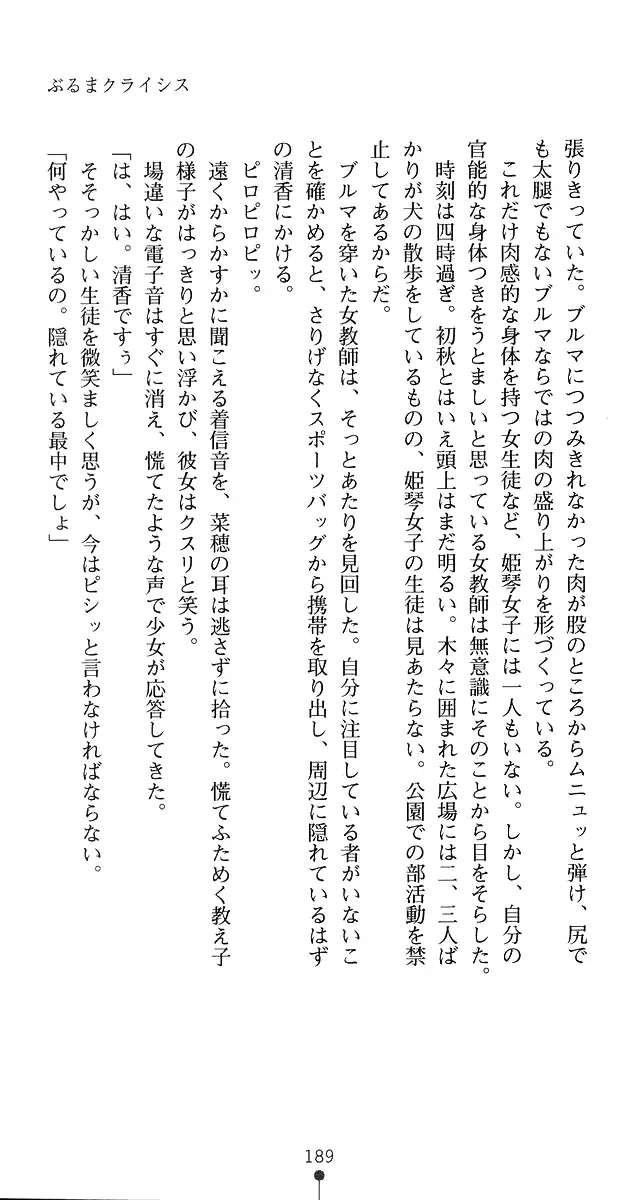 ぶるまクライシス
張りきっていた。ブルマにつつみきれなかった肉が股のところからムニュッと弾け、尻で
も太腿でもないブルマならではの肉の盛り上がりを形づくっている。
これだけ肉感的な身体を持つ女生徒など、姫琴女子には一人もいない。しかし、自分の
官能的な身体つきをうとましいと思っている女教師は無意識にそのことから目をそらした。
時刻は四時過ぎ。初秋とはいえ頭上はまだ明るい。木々に囲まれた広場には二、三人ば
かりが犬の散歩をしているものの、姫琴女子の生徒は見あたらない。公園での部活動を禁
止してあるからだ。
ブルマを穿いた女教師は、そっとあたりを見回した。自分に注目している者がいないこ
とを確かめると、さりげなくスポーツバッグから携帯を取り出し、周辺に隠れているはず
の清香にかける。
ピロピロピッ。
遠くからかすかに聞こえる着信音を、菜穂の耳は逃さずに拾った。慌てふためく教え子
の様子がはっきりと思い浮かび、彼女はクスリと笑う。
場違いな電子音はすぐに消え、慌てたような声で少女が応答してきた。
「は、はい。清香ですぅ」
そそっかしい生徒を微笑ましく思うが、今はピシッと言わなければならない。
「何やっているの。隠れている最中でしょ」
189